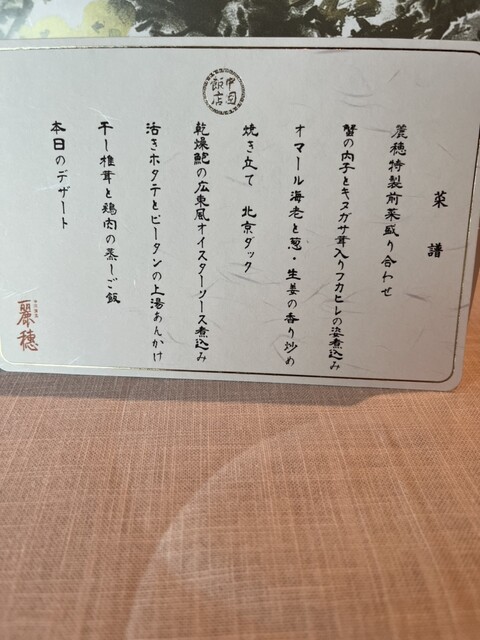 菜譜
麗穂特製前菜盛り合わせ
蟹の内子とキヌガサ茸入りフカヒレの姿煮込み
オマール海老と葱・生姜の香り炒め
焼き立て 北京ダック
乾燥鮑の広東風オイスターソース煮込み
活きホタテとピータンの上湯あんかけ
干し椎茸と鶏肉の蒸しご飯
本日のデザート
中国飯店
麗穂